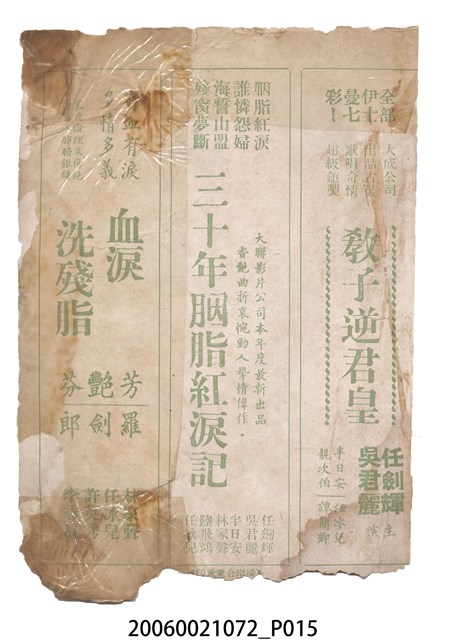 全部
伊士
曼七
彩！
大成公司
出品古裝
歌唱奇情
超級鉅製
教子逆君皇
任劍輝
吳君麗
主
演
半日安
任冰兒
靚次伯
譚蘭卿
胭脂紅淚
誰憐怨婦
海誓山盟
殘窗夢斷
三十年胭脂紅淚記
大聯影片公司本年度最新出品
香艷曲折哀惋動人摯情偉作．
任劍輝
吳君麗
半日安
林家聲
陸飛鴻
任冰兒
血有淚
情多義
血淚
洗殘脂
芳艷芬
羅劍郎
林家聲
任冰兒
20060021072_P015